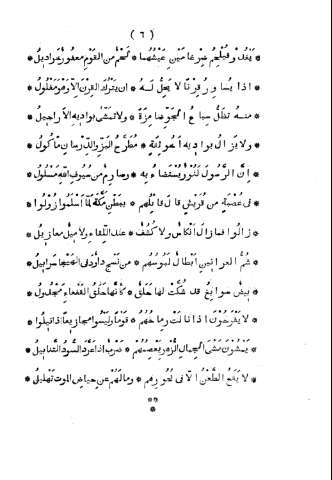 (٦)
* يغدو فيلحم ضرغامين عيشهما * لحم من القوم معفور خراديل *
* اذا يساور قرنا لا يحل له * ان يترك القرن الا وهو مفلول *
* منه تظل سباع الجو ضامزة * ولا تمشى بواديه الاراجيل *
* ولا يزال بواديه أخو ثقة * مطرح البز والدرسان مأكول *
* ان الرسول لنور يستضاء به * وصارم من سيوف الله مسلول *
* فى عصبة من قريش قال قائلهم * ببطن مكة لما اسلموا زولوا *
* زالوا فما زال انكاس ولا كشف * عند اللقاء ولا ميل معازيل *
* شم العرانين ابطال لبوسهم * من نسج داود فى الهيجا سرابيل *
* بيض سوابغ قد شكت لها حلق * كأنها حلق القفعاء مجدول *
* لا يفرحون اذا نالت رماحهم * قوما وليسوا مجازيعا اذا نيلوا *
* يمشون مشى الجمال الزهر يعصمهم * ضرب اذا عرد السود التنابيل *
* لا يقع الطعن الا فى نحورهم * وما لهم عن حياض الموت تهليل *